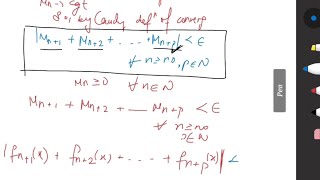 Mn → cgt
So, by Cauchy defⁿ of converg
|Mn+1 + Mn+2 + ... + Mn+p| < ε
∀ n≥no, p∈N
Mn ≥ 0 ∀ n∈N
Mn+1 + Mn+2 + ___ Mn+p < ε
∀ n≥no
p∈N
|fn+1(x) + fn+2(x) + ... + fn+p(x)| <
Pen